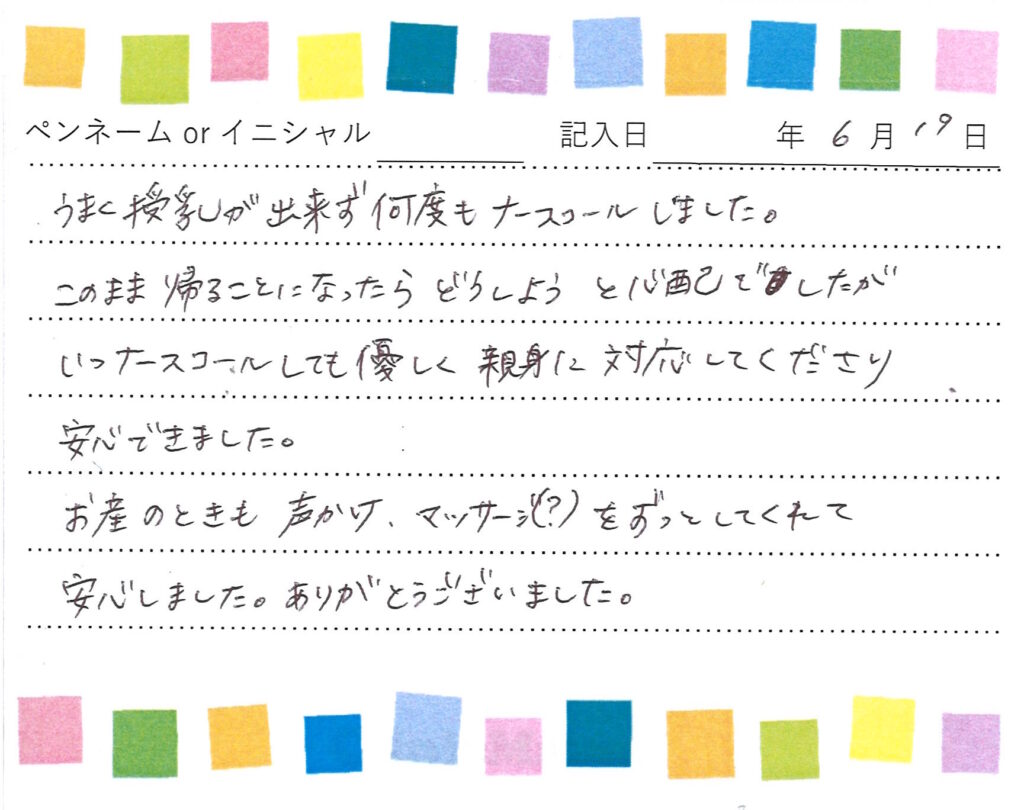 ペンネーム or イニシャル 記入日 年 6 月 19 日
うまく授乳が出来ず何度もナースコールしました。
このまま帰ることになったらどうしようと心配でしたが
いつナースコールしても優しく親身に対応してくださり
安心できました。
お産のときも声かけ、マッサージ(?)をずっとしてくれて
安心しました。ありがとうございました。